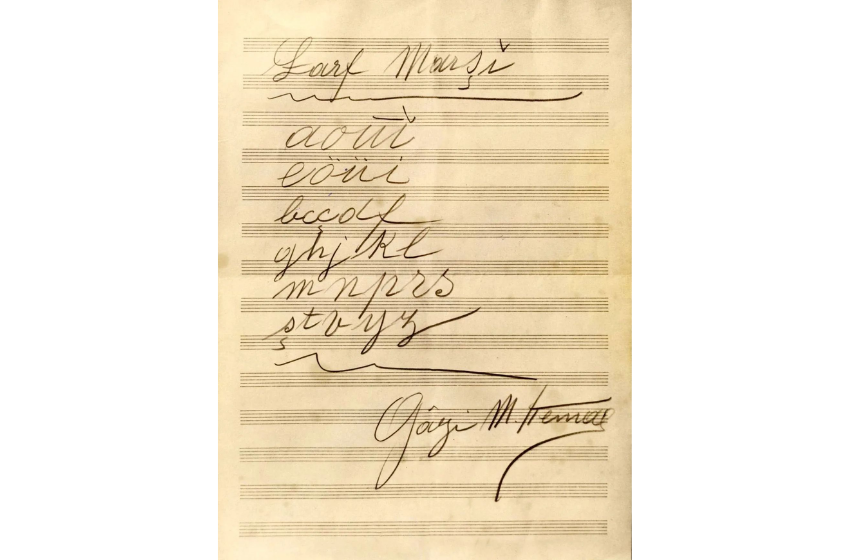 Harf Marşĭ
a o u ĭ
e ö ü i
b c ç d f
g h j k l
m n p r s
ş t v y z
Gâzi M. Kemal